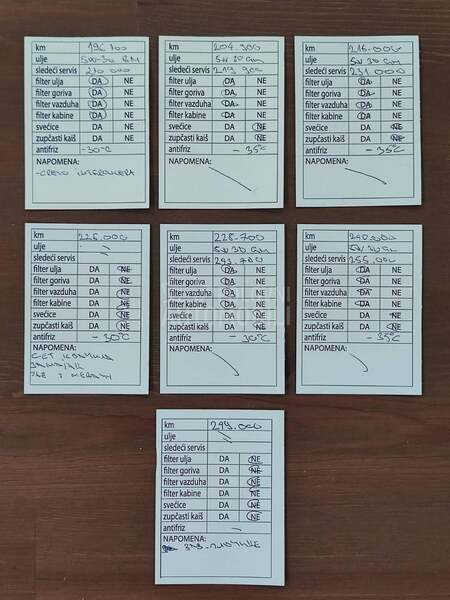 km 196.100
ulje 5W-30 GM
sledeći servis 210 000
filter ulja DA NE
filter goriva DA NE
filter vazduha DA NE
filter kabine DA NE
svećice DA NE
zupčasti kaiš DA NE
antifriz -30°C
NAPOMENA:
-CREVO INTERCULERA
km 204.900
ulje 5W30 GM
sledeći servis 219 900
filter ulja DA NE
filter goriva DA NE
filter vazduha DA NE
filter kabine DA NE
svećice DA NE
zupčasti kaiš DA NE
antifriz -35°C
NAPOMENA:
km 216.000
ulje 5W30 GM
sledeći servis 231 000
filter ulja DA NE
filter goriva DA NE
filter vazduha DA NE
filter kabine DA NE
svećice DA NE
zupčasti kaiš DA NE
antifriz -35°C
NAPOMENA:
km 226.000
ulje
sledeći servis
filter ulja DA NE
filter goriva DA NE
filter vazduha DA NE
filter kabine DA NE
svećice DA NE
zupčasti kaiš DA NE
antifriz -30°C
NAPOMENA:
СЕТ
km 228.700
ulje 5W30 GM
sledeći servis 243.700
filter ulja DA NE
filter goriva DA NE
filter vazduha DA NE
filter kabine DA NE
svećice DA NE
zupčasti kaiš DA NE
antifriz -30°C
NAPOMENA:
km 240.000
ulje 5W30 GM
sledeći servis 255.000
filter ulja DA NE
filter goriva DA NE
filter vazduha DA NE
filter kabine DA NE
svećice DA NE
zupčasti kaiš DA NE
antifriz -35°C
NAPOMENA:
km 249.000
ulje
sledeći servis
filter ulja DA NE
filter goriva DA NE
filter vazduha DA NE
filter kabine DA NE
svećice DA NE
zupčasti kaiš DA NE
antifriz -
NAPOMENA:
ЗАД. ПЛОЧИЦЕ